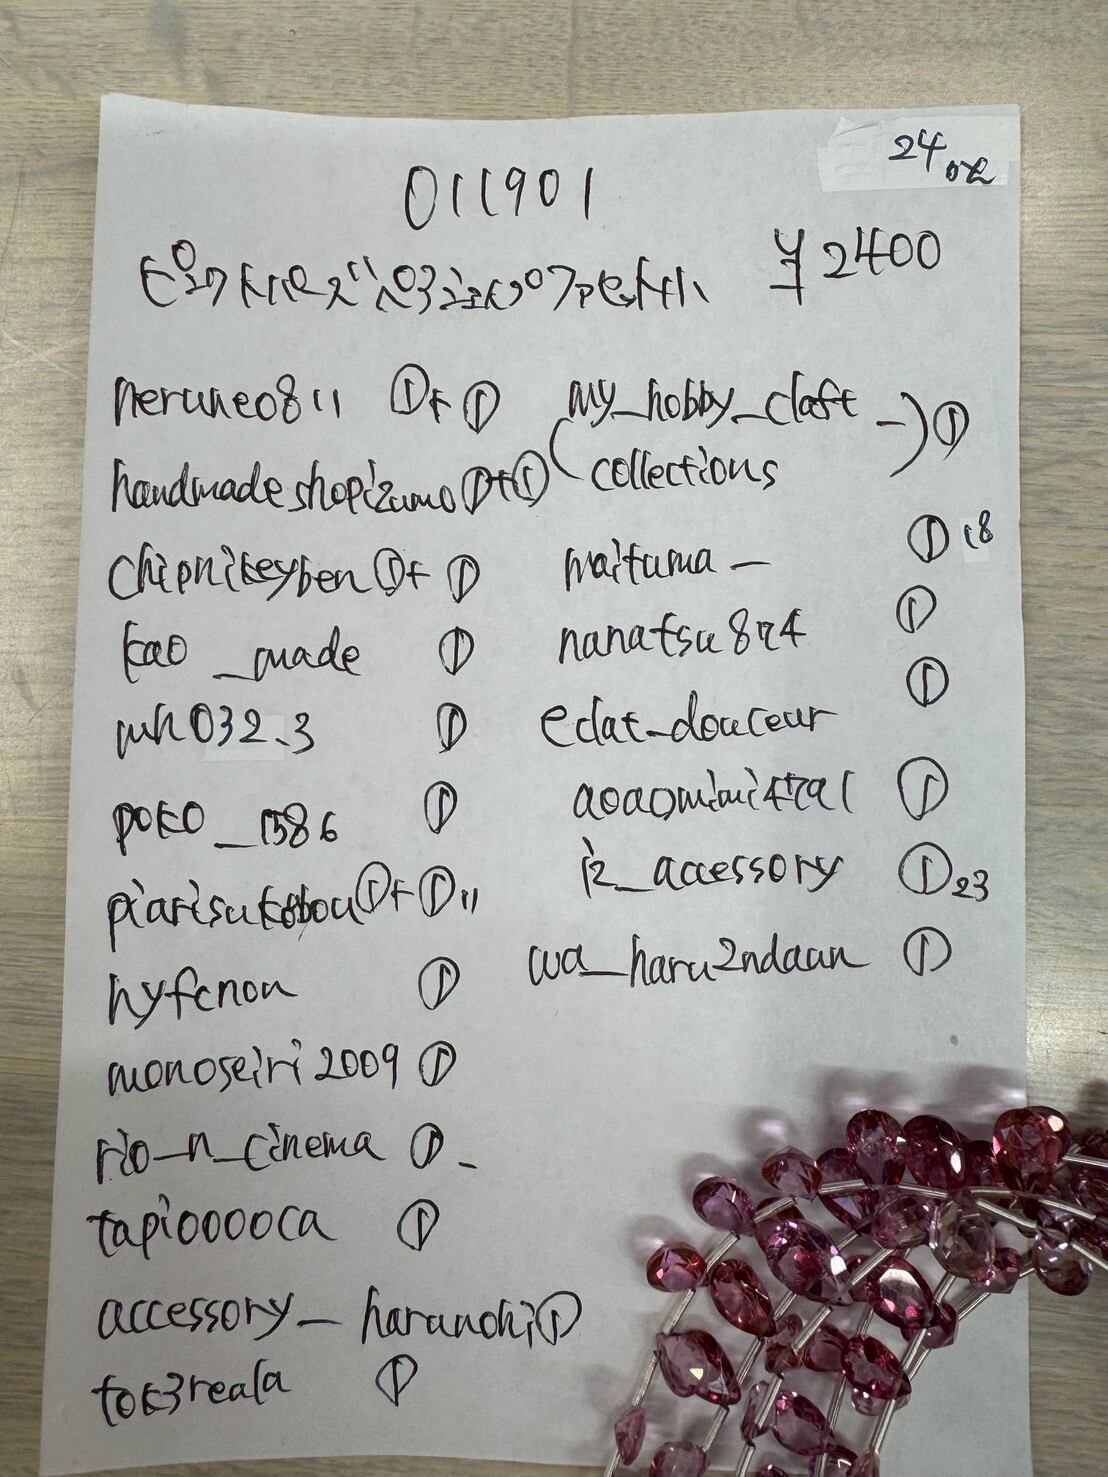 24
011901
ピンクトパーズ ペアシェイプファセット ¥2400
neruneo811 ①+①
handmadeshopizumo ①+①
chipnikeyben ①+①
kao_made ①
mh032.3 ①
poko_1586 ①
piarisukobou ①+① 11
hyfcnon ①
monoseiri2009 ①
rio_n_cinema ①
tapiooooca ①
accessory_harunohi ①
tok3reala ①
(my_hobby_claft_
collections) ①
maituma_ ① 18
nanatsu874 ①
eclat_douceur ①
aoaomimi4791 ①
iz_accessory ① 23
wa_haru2ndaan ①